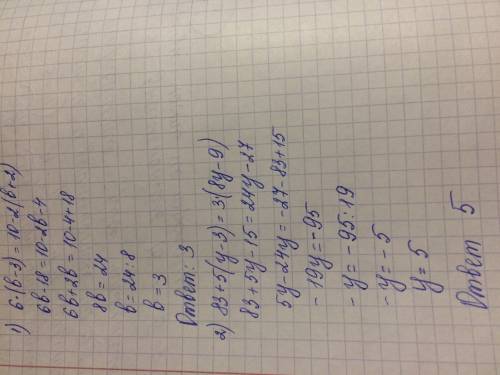 1) 6·(в-3)=10-2(в+2)
6в-18=10-2в-4
6в+2в=10-4+18
8в=24
в=24:8
в=3
Ответ: 3
2) 83+5(у-3)=3(8у-9)
83+5у-15=24у-27
5у-24у=-27-83+15
-19у=-95
-у=-95:19
-у=-5
у=5
Ответ 5